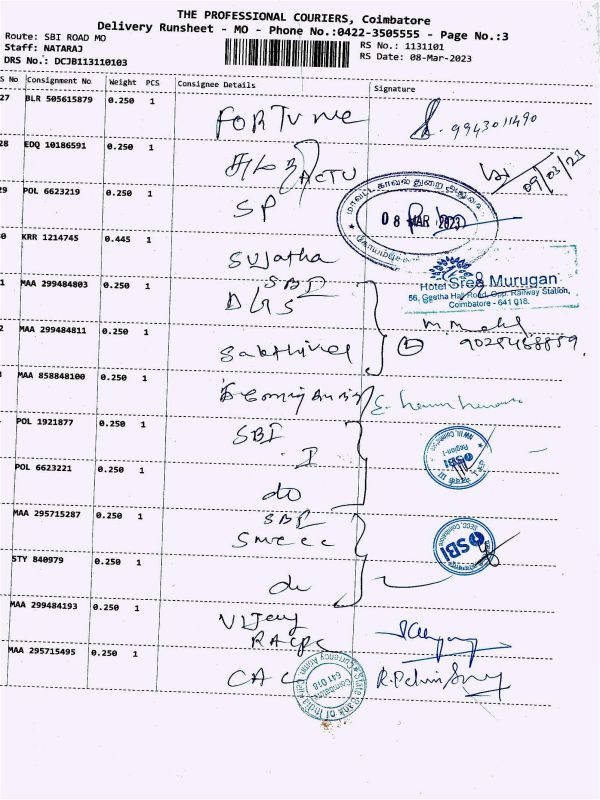 THE PROFESSIONAL COURIERS, Coimbatore
Delivery Runsheet - MO - Phone No.:0422-3505555 - Page No.:3
Route: SBI ROAD MO
Staff: NATARAJ
DRS No.: DCJB113110103
RS No.: 1131101
RS Date: 08-Mar-2023
S No Consignment No Weight PCS Consignee Details Signature
27 BLR 505615879 0.250 1 FORTUNE 9943011490
28 EDQ 10186591 0.250 1 ACTU
09/03/23
29 POL 6623219 0.250 1 SP
மாவட்ட காவல் துறை
08 MAR 2023
0 KRR 1214745 0.445 1 Sujatha
Hotel Sree Murugan
56, Geetha Hall Road, Opp. Railway Station,
Coimbatore - 641 018.
1 MAA 299484803 0.250 1 SBI
2 MAA 299484811 0.250 1 Sakthivel
2
MAA 858848100 0.250 1
POL 1921877 0.250 1 SBI
I
SBI
Region-I
POL 6623221 0.250 1 do
MAA 295715287 0.250 1 SBI
Smecc
SBI
STY 840979 0.250 1 do
MAA 299484193 0.250 1 Vijay
RACPC
MAA 295715495 0.250 1 CAC
State Bank of India
Coimbatore
641 018